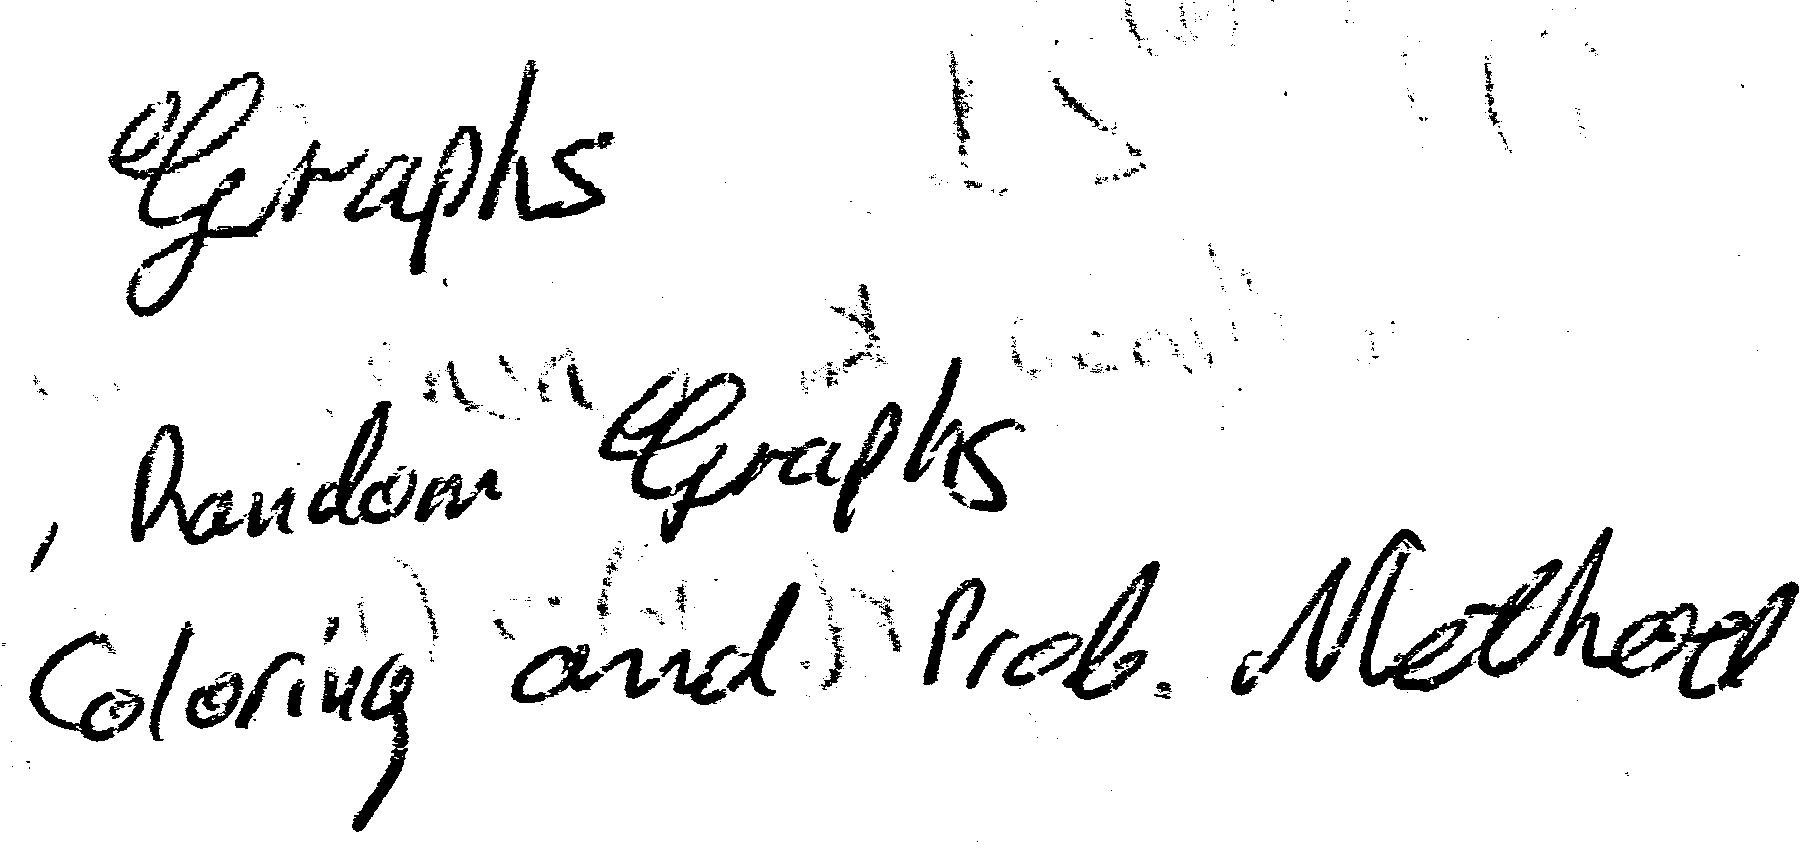 Graphs
, Random Graphs
Coloring and Prob. Method